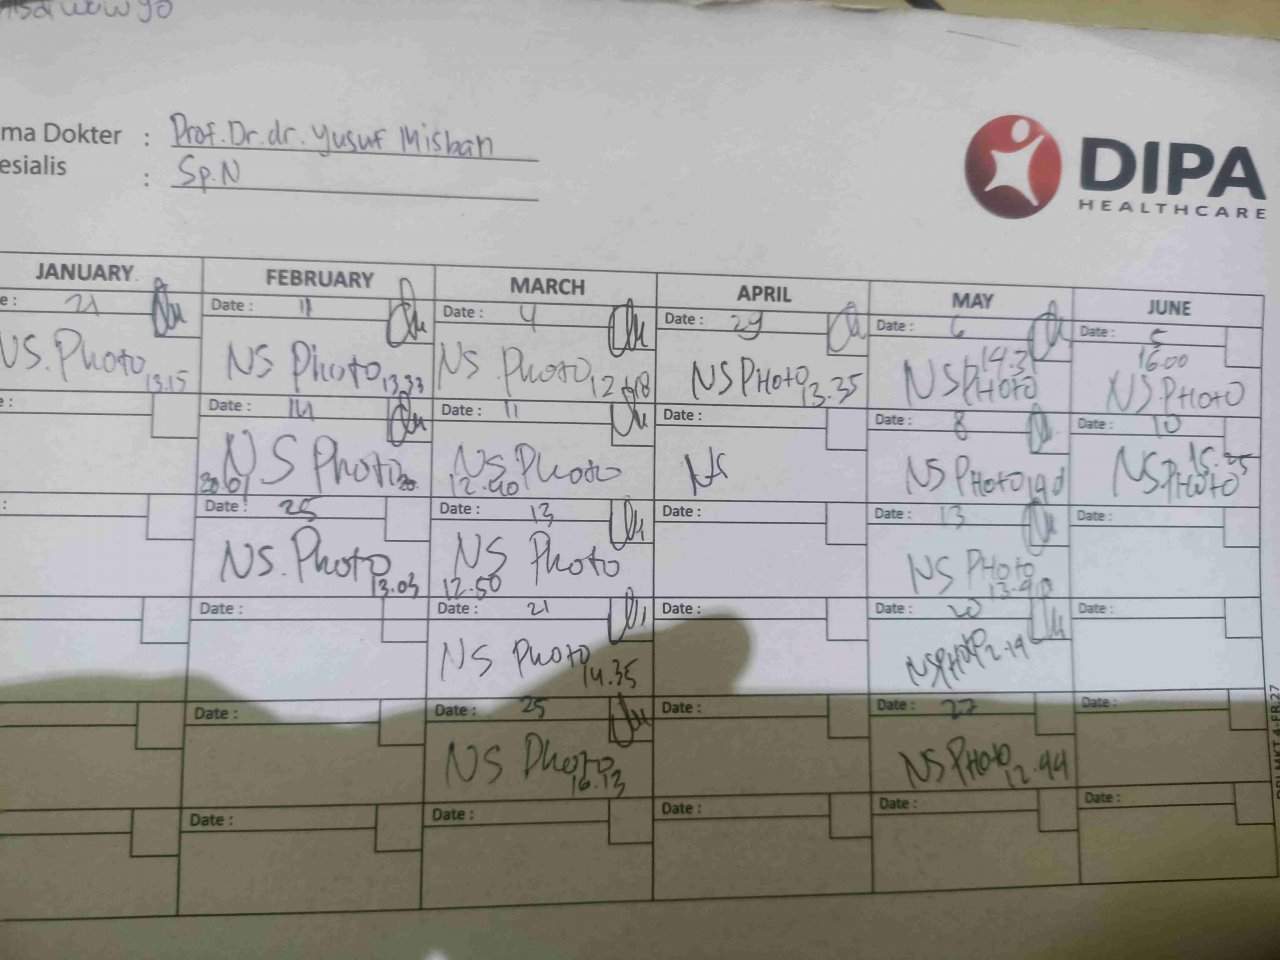 ma Dokter : Prof.Dr.dr. Yusuf Misbah
esialis : Sp.N
DIPA
HEALTHCARE
JANUARY FEBRUARY MARCH APRIL MAY JUNE
e: 21 Date : 11 Date : 4 Date : 29 Date : 6 Date : 5
NS. Photo 13.15 NS Photo 13.33 NS Photo NS PHOTO 13.35 NS PHOTO 16.00 NS.PHOTO
e: Date : 14 Date : 11 Date : Date : 8 Date : 10
NS Photo NS Photo 12.40 NS NS PHOTO NS.PHOTO
: Date : 25 Date : 13 Date : Date : 13 Date :
NS. Photo 13.03 NS Photo 12.50 NS PHOTO
Date : Date : 21 Date : Date : 20 Date :
NS Photo 14.35 NSPHOTO
Date : Date : 25 Date : Date : 27 Date :
NS Photo 16.13 NS PHOTO 12.44
Date : Date : Date : Date : Date :